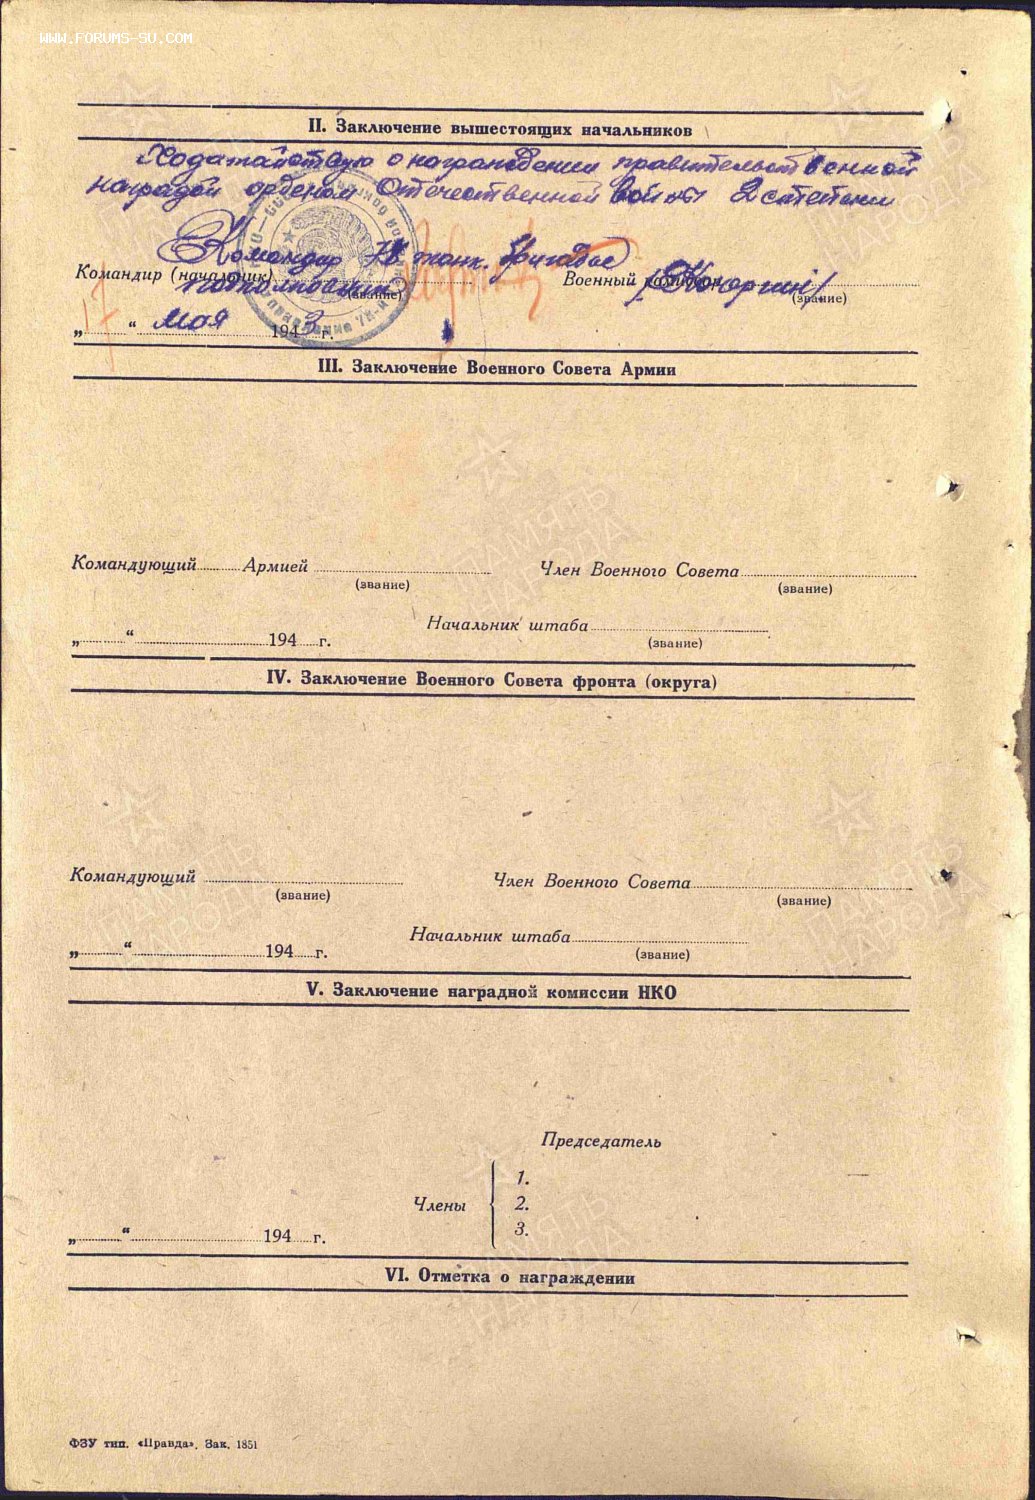 WWW.FORUMS-SU.COM
II. Заключение вышестоящих начальников
Ходатайствую о награждении правительственной
наградой орденом Отечественной войны 2 степени
Командир 78 танк. бригады
Командир (начальник) подполковник (звание) Военный комиссар /Кочергин/ (звание)
„17“ мая 1943 г.
III. Заключение Военного Совета Армии
Командующий Армией (звание) Член Военного Совета (звание)
Начальник штаба (звание)
„ “ 194 г.
IV. Заключение Военного Совета фронта (округа)
Командующий (звание) Член Военного Совета (звание)
Начальник штаба (звание)
„ “ 194 г.
V. Заключение наградной комиссии НКО
Председатель
Члены
1.
2.
3.
„ “ 194 г.
VI. Отметка о награждении
ФЗУ тип. «Правда». Зак. 1851
ПАМЯТЬ
НАРОДА